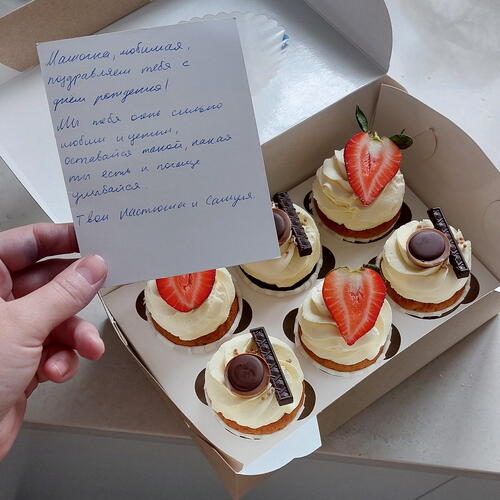 Мамочка, любимая,
поздравляем тебя с
днём рождения!
Мы тебя очень сильно
любим и ценим,
оставайся такой, какая
ты есть и почаще
улыбайся.
Твои Настюша и Сашуля.